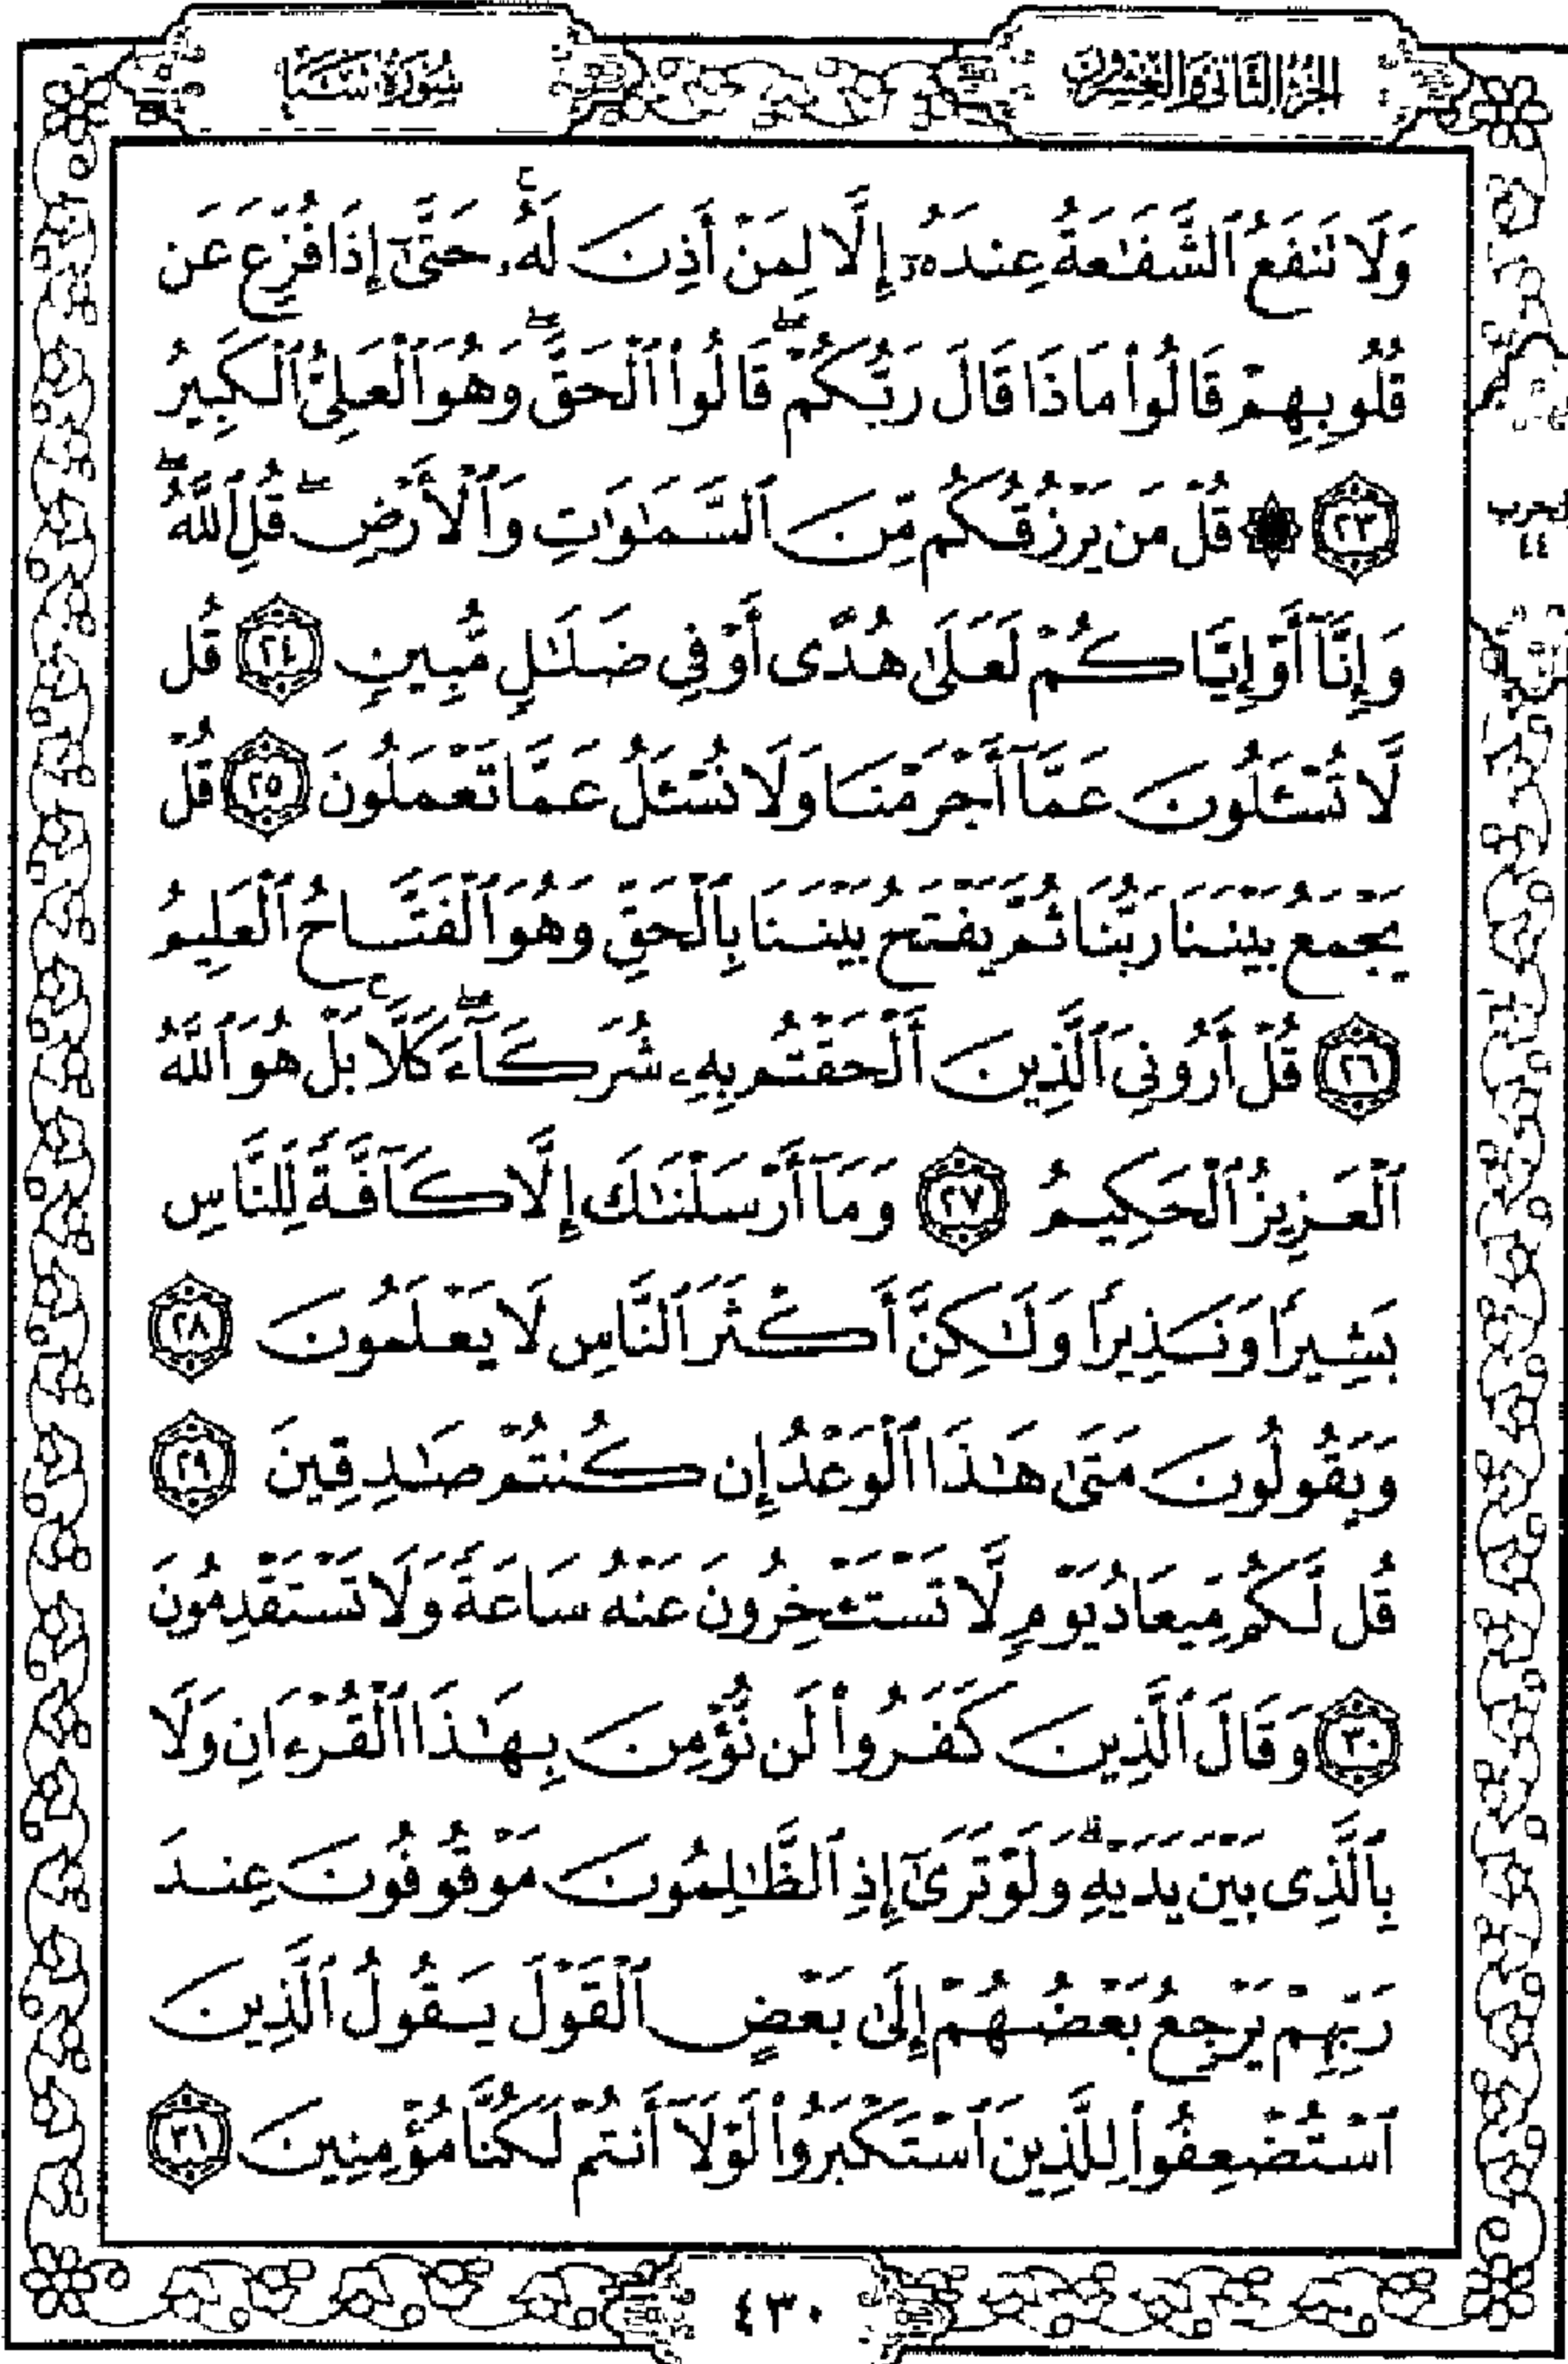 الجزء الثاني والعشرون
سورة سبإ
وَلَا تَنفَعُ ٱلشَّفَٰعَةُ عِندَهُۥٓ إِلَّا لِمَنْ أَذِنَ لَهُۥۚ حَتَّىٰٓ إِذَا فُزِّعَ عَن
قُلُوبِهِمْ قَالُوا۟ مَاذَا قَالَ رَبُّكُمْۖ قَالُوا۟ ٱلْحَقَّۖ وَهُوَ ٱلْعَلِىُّ ٱلْكَبِيرُ
٢٣ ۞ قُلْ مَن يَرْزُقُكُم مِّنَ ٱلسَّمَٰوَٰتِ وَٱلْأَرْضِۖ قُلِ ٱللَّهُۖ
وَإِنَّآ أَوْ إِيَّاكُمْ لَعَلَىٰ هُدًى أَوْ فِى ضَلَٰلٍ مُّبِينٍ ٢٤ قُل
لَّا تُسْـَٔلُونَ عَمَّآ أَجْرَمْنَا وَلَا نُسْـَٔلُ عَمَّا تَعْمَلُونَ ٢٥ قُلْ
يَجْمَعُ بَيْنَنَا رَبُّنَا ثُمَّ يَفْتَحُ بَيْنَنَا بِٱلْحَقِّ وَهُوَ ٱلْفَتَّاحُ ٱلْعَلِيمُ
٢٦ قُلْ أَرُونِىَ ٱلَّذِينَ أَلْحَقْتُم بِهِۦ شُرَكَآءَۖ كَلَّاۚ بَلْ هُوَ ٱللَّهُ
ٱلْعَزِيزُ ٱلْحَكِيمُ ٢٧ وَمَآ أَرْسَلْنَٰكَ إِلَّا كَآفَّةً لِّلنَّاسِ
بَشِيرًا وَنَذِيرًا وَلَٰكِنَّ أَكْثَرَ ٱلنَّاسِ لَا يَعْلَمُونَ ٢٨
وَيَقُولُونَ مَتَىٰ هَٰذَا ٱلْوَعْدُ إِن كُنتُمْ صَٰدِقِينَ ٢٩
قُل لَّكُم مِّيعَادُ يَوْمٍ لَّا تَسْتَـْٔخِرُونَ عَنْهُ سَاعَةً وَلَا تَسْتَقْدِمُونَ
٣٠ وَقَالَ ٱلَّذِينَ كَفَرُوا۟ لَن نُّؤْمِنَ بِهَٰذَا ٱلْقُرْءَانِ وَلَا
بِٱلَّذِى بَيْنَ يَدَيْهِۗ وَلَوْ تَرَىٰٓ إِذِ ٱلظَّٰلِمُونَ مَوْقُوفُونَ عِندَ
رَبِّهِمْ يَرْجِعُ بَعْضُهُمْ إِلَىٰ بَعْضٍ ٱلْقَوْلَ يَقُولُ ٱلَّذِينَ
ٱسْتُضْعِفُوا۟ لِلَّذِينَ ٱسْتَكْبَرُوا۟ لَوْلَآ أَنتُمْ لَكُنَّا مُؤْمِنِينَ ٣١
٤٣٠